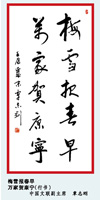 梅雪报春早
万家贺康宁
梅雪报春早
万家贺康宁(行书)
中国文联副主席 覃志刚